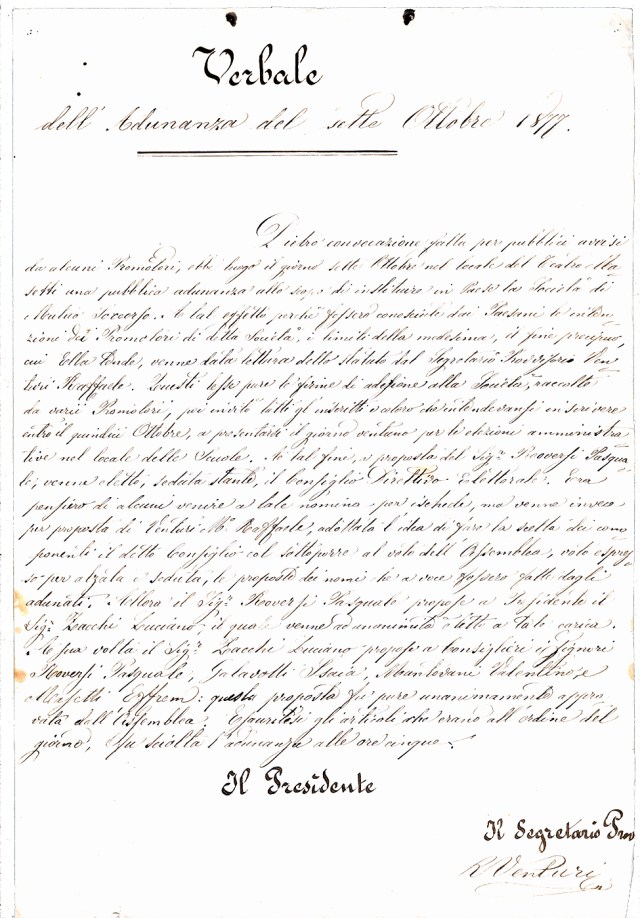 Verbale
dell' Adunanza del sette Ottobre 1877.
Dietro convocazione fatta per pubblici avvisi
da alcuni Promotori, ebbe luogo il giorno sette Ottobre nel locale del Teatro Ma-
setti una pubblica adunanza allo scopo di instituire in Paese la Società di
Mutuo Soccorso. A tal effetto perchè fossero conosciute dai Paesani le inten-
zione dei Promotori di detta Società, i limiti della medesima, il fine precipuo,
cui Ella tende, venne data lettura dello statuto dal Segretario Provvisorio Ven-
turi Raffaele. Questi lesse pure le firme di adesione alla Società, raccolte
da varii Promotori, poi invitò tutti gli inscritti e coloro che intendevansi inscrivere
entro il quindici Ottobre, a presentarsi il giorno ventuno per le elezioni amministra-
tive nel locale delle Scuole. A tal fine, a proposta del Sigr. Roversi Pasqua-
le, venne eletto, seduta stante, il Consiglio Direttivo Elettorale. Era
pensiero di alcuni venire a tale nomina per ischede, ma venne invece
per proposta di Venturi Mo. Raffaele, adottata l'idea di fare la scelta dei com-
ponenti il detto Consiglio col sottoporre al voto dell'Assemblea, voto espres-
so per alzata e seduta, le proposte dei nomi che a voce fossero fatte dagli
adunati. Allora il Sigr. Roversi Pasquale propose a Presidente il
Sigr. Zacchi Luciano, il quale venne ad unanimità eletto a tale carica.
A sua volta il Sigr. Zacchi Luciano propose a Consiglieri i Signori
Roversi Pasquale, Galavotti Isaia, Mantovani Valentino, e
Masetti Effrem: questa proposta fu pure unanimamente appro-
vata dall'Assemblea. Esauritisi gli articoli che erano all'ordine del
giorno, fu sciolta l'adunanza alle ore cinque.
Il Presidente
Il Segretario Prov
R Venturi